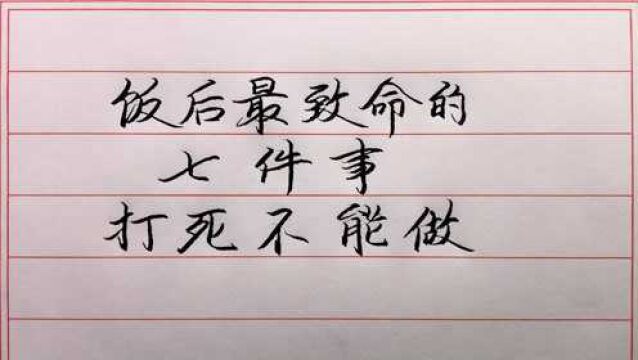 饭后最致命的
七件事
打死不能做